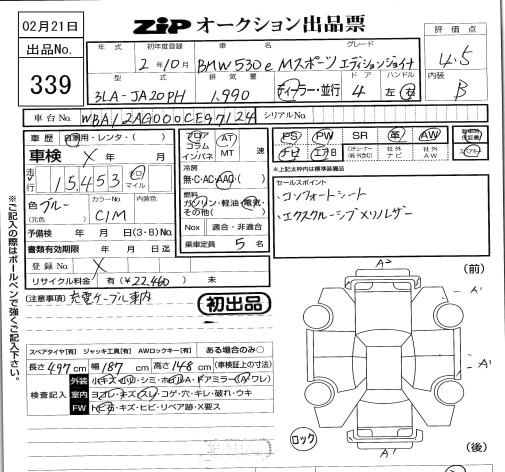 02月21日
ZIP オークション出品票
出品No.
339
評価点
4.5
内装
B
年式
初年度登録
車名
グレード
2年10月
BMW 530e Mスポーツ エディションジョイナ
型式
排気量
ドア
ハンドル
3LA-JA20PH
1,990
ディーラー・並行
4
左 右
車台No.
WBA12AG000CE97124
シリアルNo.
車歴
自家用・レンタ・( )
車検
X年 月
走行
15,453
キロ
マイル
色 ブルー
(元色 )
カラーNo.
C1M
内装色
予備検 年 月 日(3・8)No.
書類有効期限 年 月 日迄
登録No.
X
リサイクル料金 有(¥22,460) 未
フロア
コラム
インパネ
AT
MT
速
冷房
無・C・AC・AAC・( )
燃料
ガソリン・軽油・電気・
その他( )
Nox 適合・非適合
乗車定員 5名
PS PW SR 革 AW
ナビ エアB
社外ナビ
社外AW
*上記太枠内は標準装備品
セールスポイント
・コンフォートシート
・エクスクルーシブメリノレザー
(注意事項) 充電ケーブル車内
初出品
※ご記入の際はボールペンで強くご記入下さい。
スペアタイヤ[有] ジャッキ工具[有] AWロックキー[有] ある場合のみ○
長さ497cm 幅187cm 高さ148cm (車検証上の寸法)
検査記入
外装 小キズ・凹・シミ・ホイルA・ドアミラー(A・ワレ)
室内 ヨゴレ・キズ・スリ・コゲ・穴・キレ・破れ・ウキ
FW トビ石・キズ・ヒビ・リペア跡・X要ス
(前)
A2
A'
A'
A'
ロック
(後)